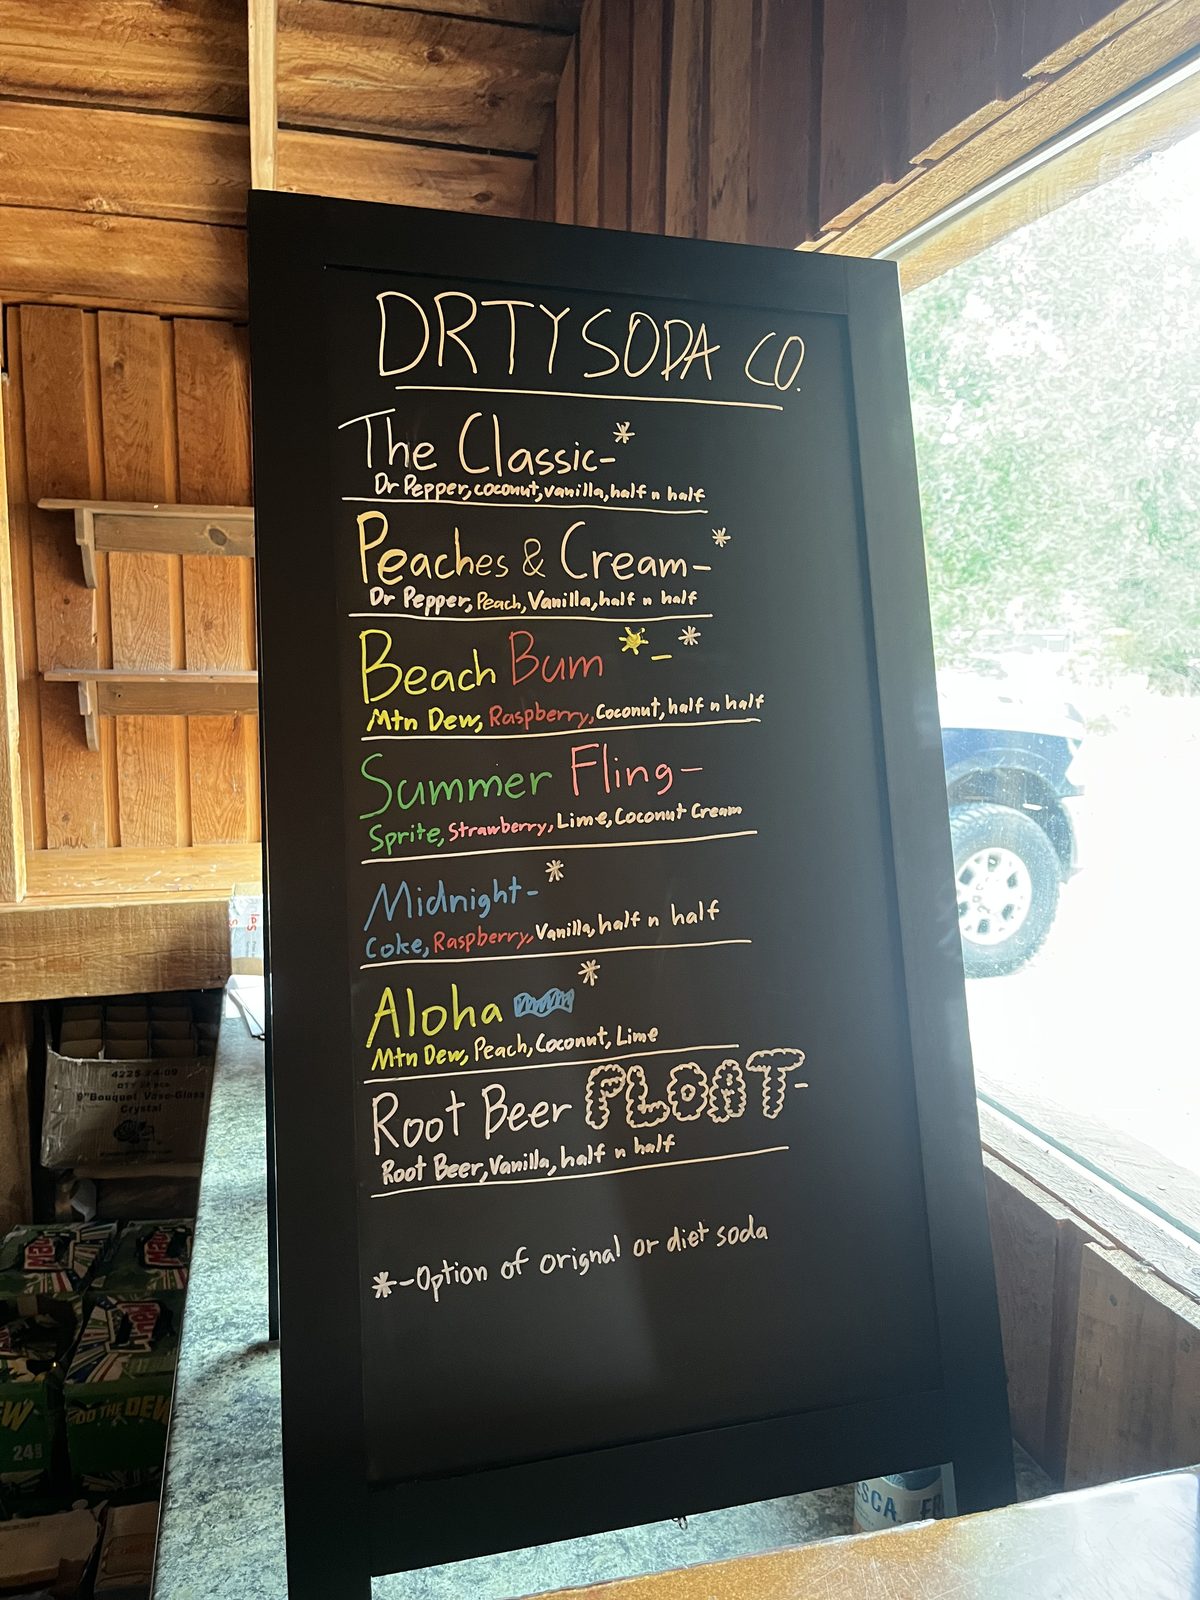 DRTY SODA CO.
The Classic-*
Dr Pepper, coconut, vanilla, half n half
Peaches & Cream-*
Dr Pepper, Peach, Vanilla, half n half
Beach Bum -*
Mtn Dew, Raspberry, Coconut, half n half
Summer Fling-
Sprite, Strawberry, Lime, Coconut Cream
Midnight-*
Coke, Raspberry, Vanilla, half n half
Aloha *
Mtn Dew, Peach, Coconut, Lime
Root Beer FLOAT-
Root Beer, Vanilla, half n half
*-Option of orignal or diet soda
4225-24-09
9"Bouquet Vase-Glass
Crystal
DO THE DEW
24
ESCA